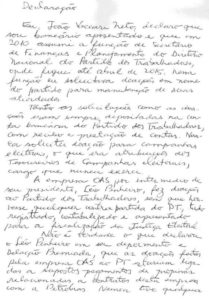 Declaração
Eu, João Vaccari Neto, declaro que
sou bancário aposentado e que em
2010 assumi a função de Secretário
de Finanças e Planejamento do Diretório
Nacional do Partido dos Trabalhadores,
onde fiquei até abril de 2015. Nem
função eu solicitava doações em nome
do partido para manutenção de suas
atividades.
Tanto as solicitações como as
eram sempre depositadas na
bancária do Partido dos Trabalhadores,
com recibo e prestação de contas.
solicitei doação para campanhas
eleitorais, o que era atribuição dos
Tesoureiros de Campanhas eleitorais,
cargo que nunca exerci.
A empresa OAS por intermédio de
seu presidente, Léo Pinheiro, fez doações
ao Partido dos Trabalhadores, sem que
qualquer outra partida do PT,
registrado, contabilizado e apresentado
para a fiscalização da Justiça Eleitoral.
Não é verdade o que declarou
o Léo Pinheiro em seu depoimento e
Delação Premiada, que as doações feitas
pela empresa OAS ao PT
a supostos pagamentos de propinas
relacionadas a contratos desta empresa
com a Petrobras. Nunca tive qualquer